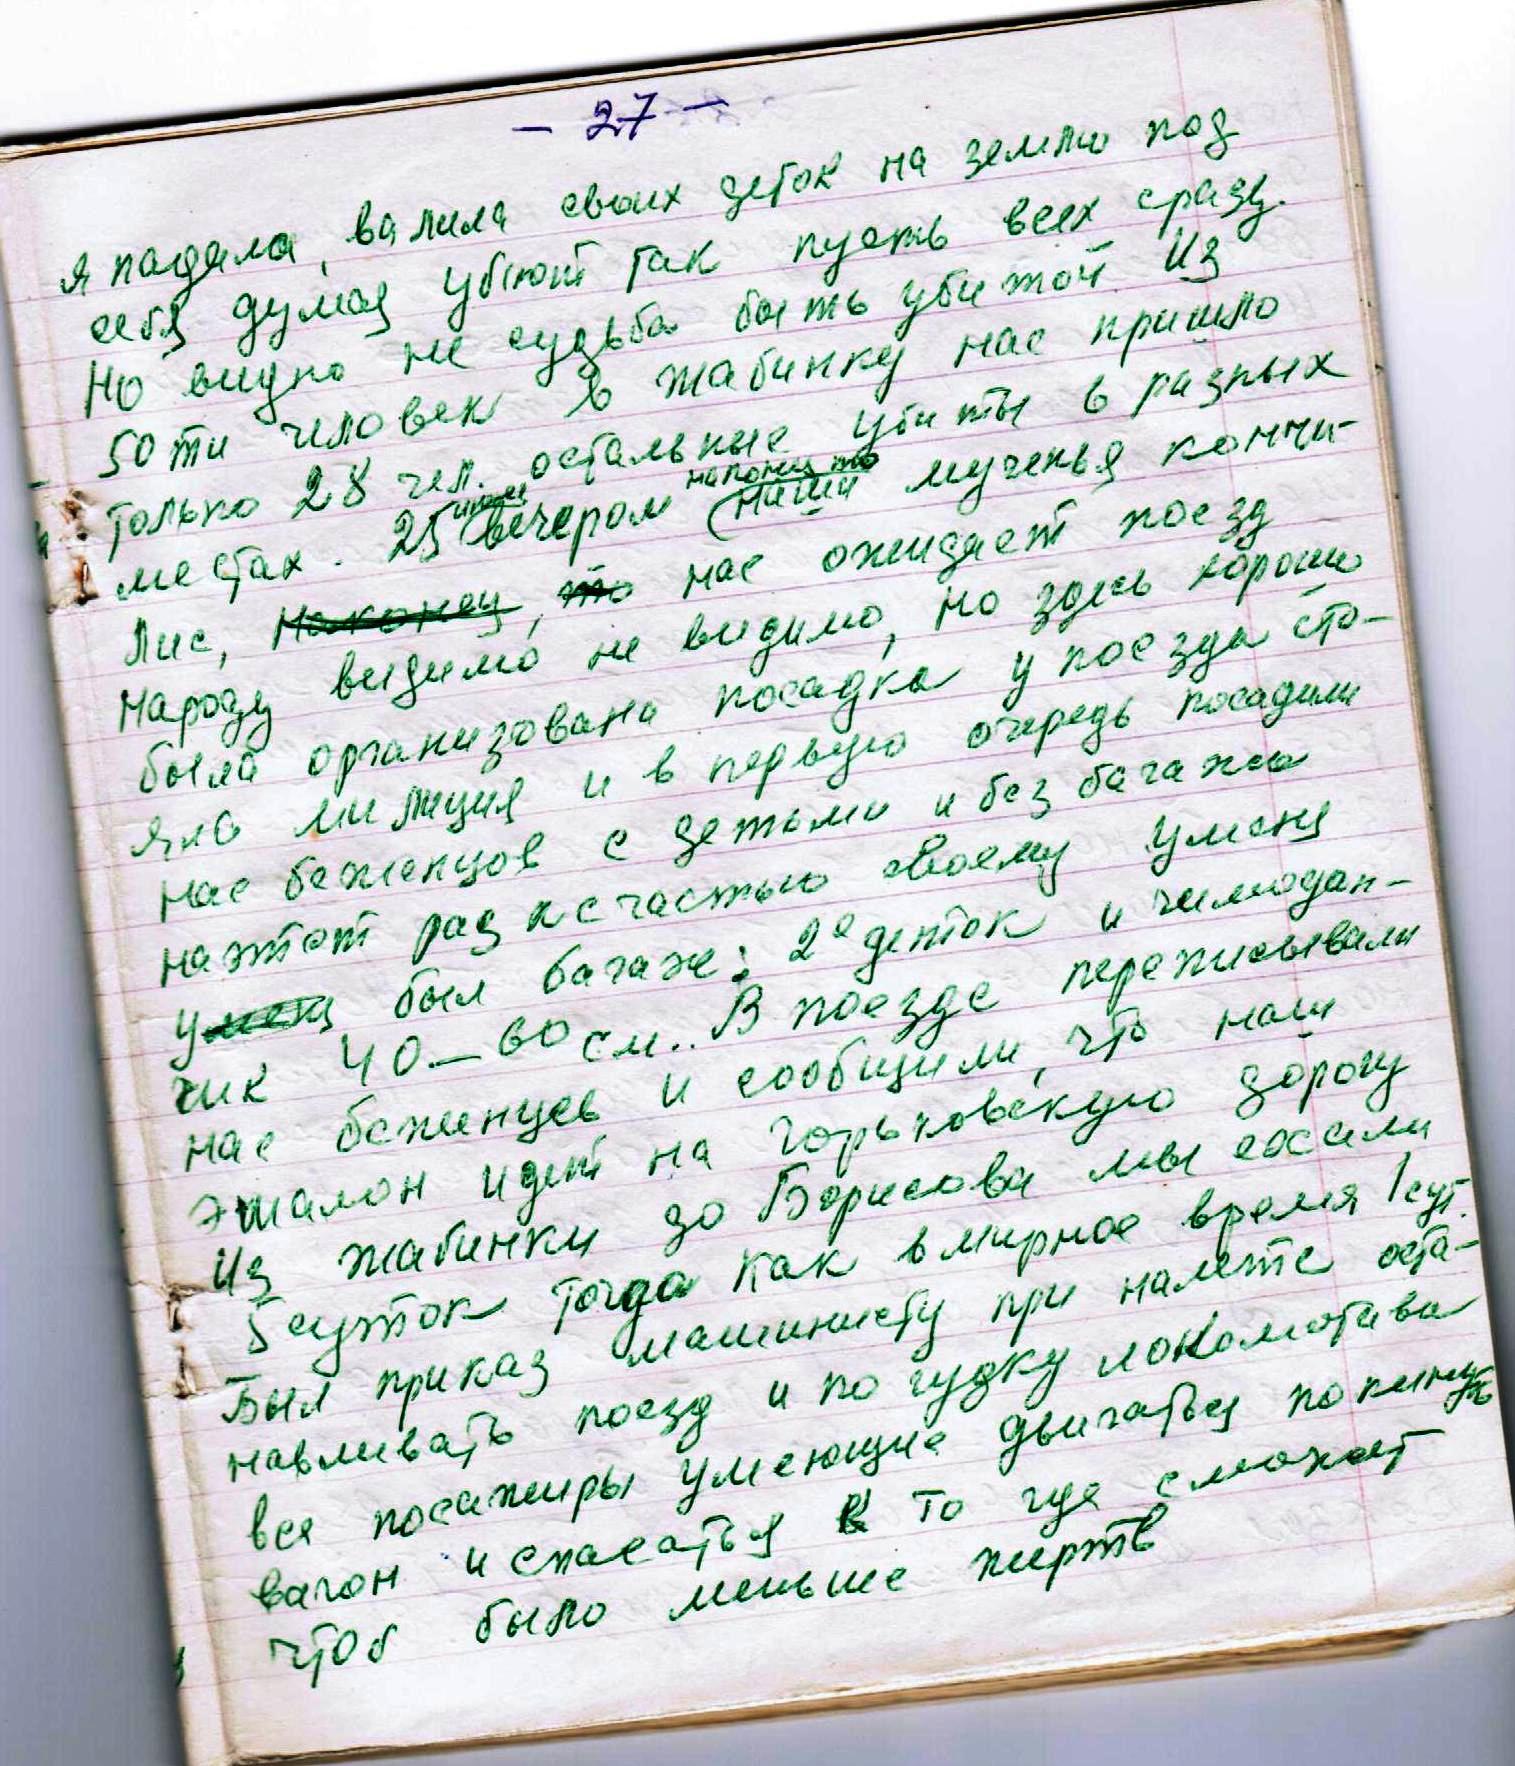 - 27 -
я падала, валила своих деток на землю под
себя думая убьют так пусть всех сразу.
Но видно не судьба быть убитой. Из
50ти человек в Жабинку нас пришло
только 28 чел. остальные убиты в разных
местах. 25 июня вечером наконец то (наши мученья кончи-
лись, наконец, то нас ожидает поезд
народу видимо не видимо, но здесь хорошо
была организована посадка у поезда сто-
яла милиция и в первую очередь посадили
нас беженцов с детьми и без багажа
на этот раз к счастью своему у меня
у меня был багаж: 2е деток и чемодан-
чик 40-60 см.. В поезде переписывали
нас беженцев и сообщили, что наш
эшалон идет на Горьковскую дорогу
Из Жабинки до Борисова мы ехали
5 суток тогда как в мирное время 1 сут.
Был приказ машинисту при налете оста-
навливать поезд и по гудку локомотива
все посажиры умеющие двигаться покинуть
вагон и спасаться кто где сможет
чтоб было меньше жертв